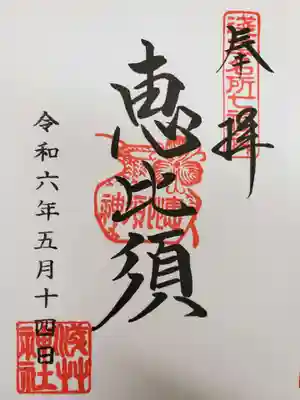 奉拝
浅草名所七福神
恵比須
恵比須神
令和六年五月十四日
浅草神社